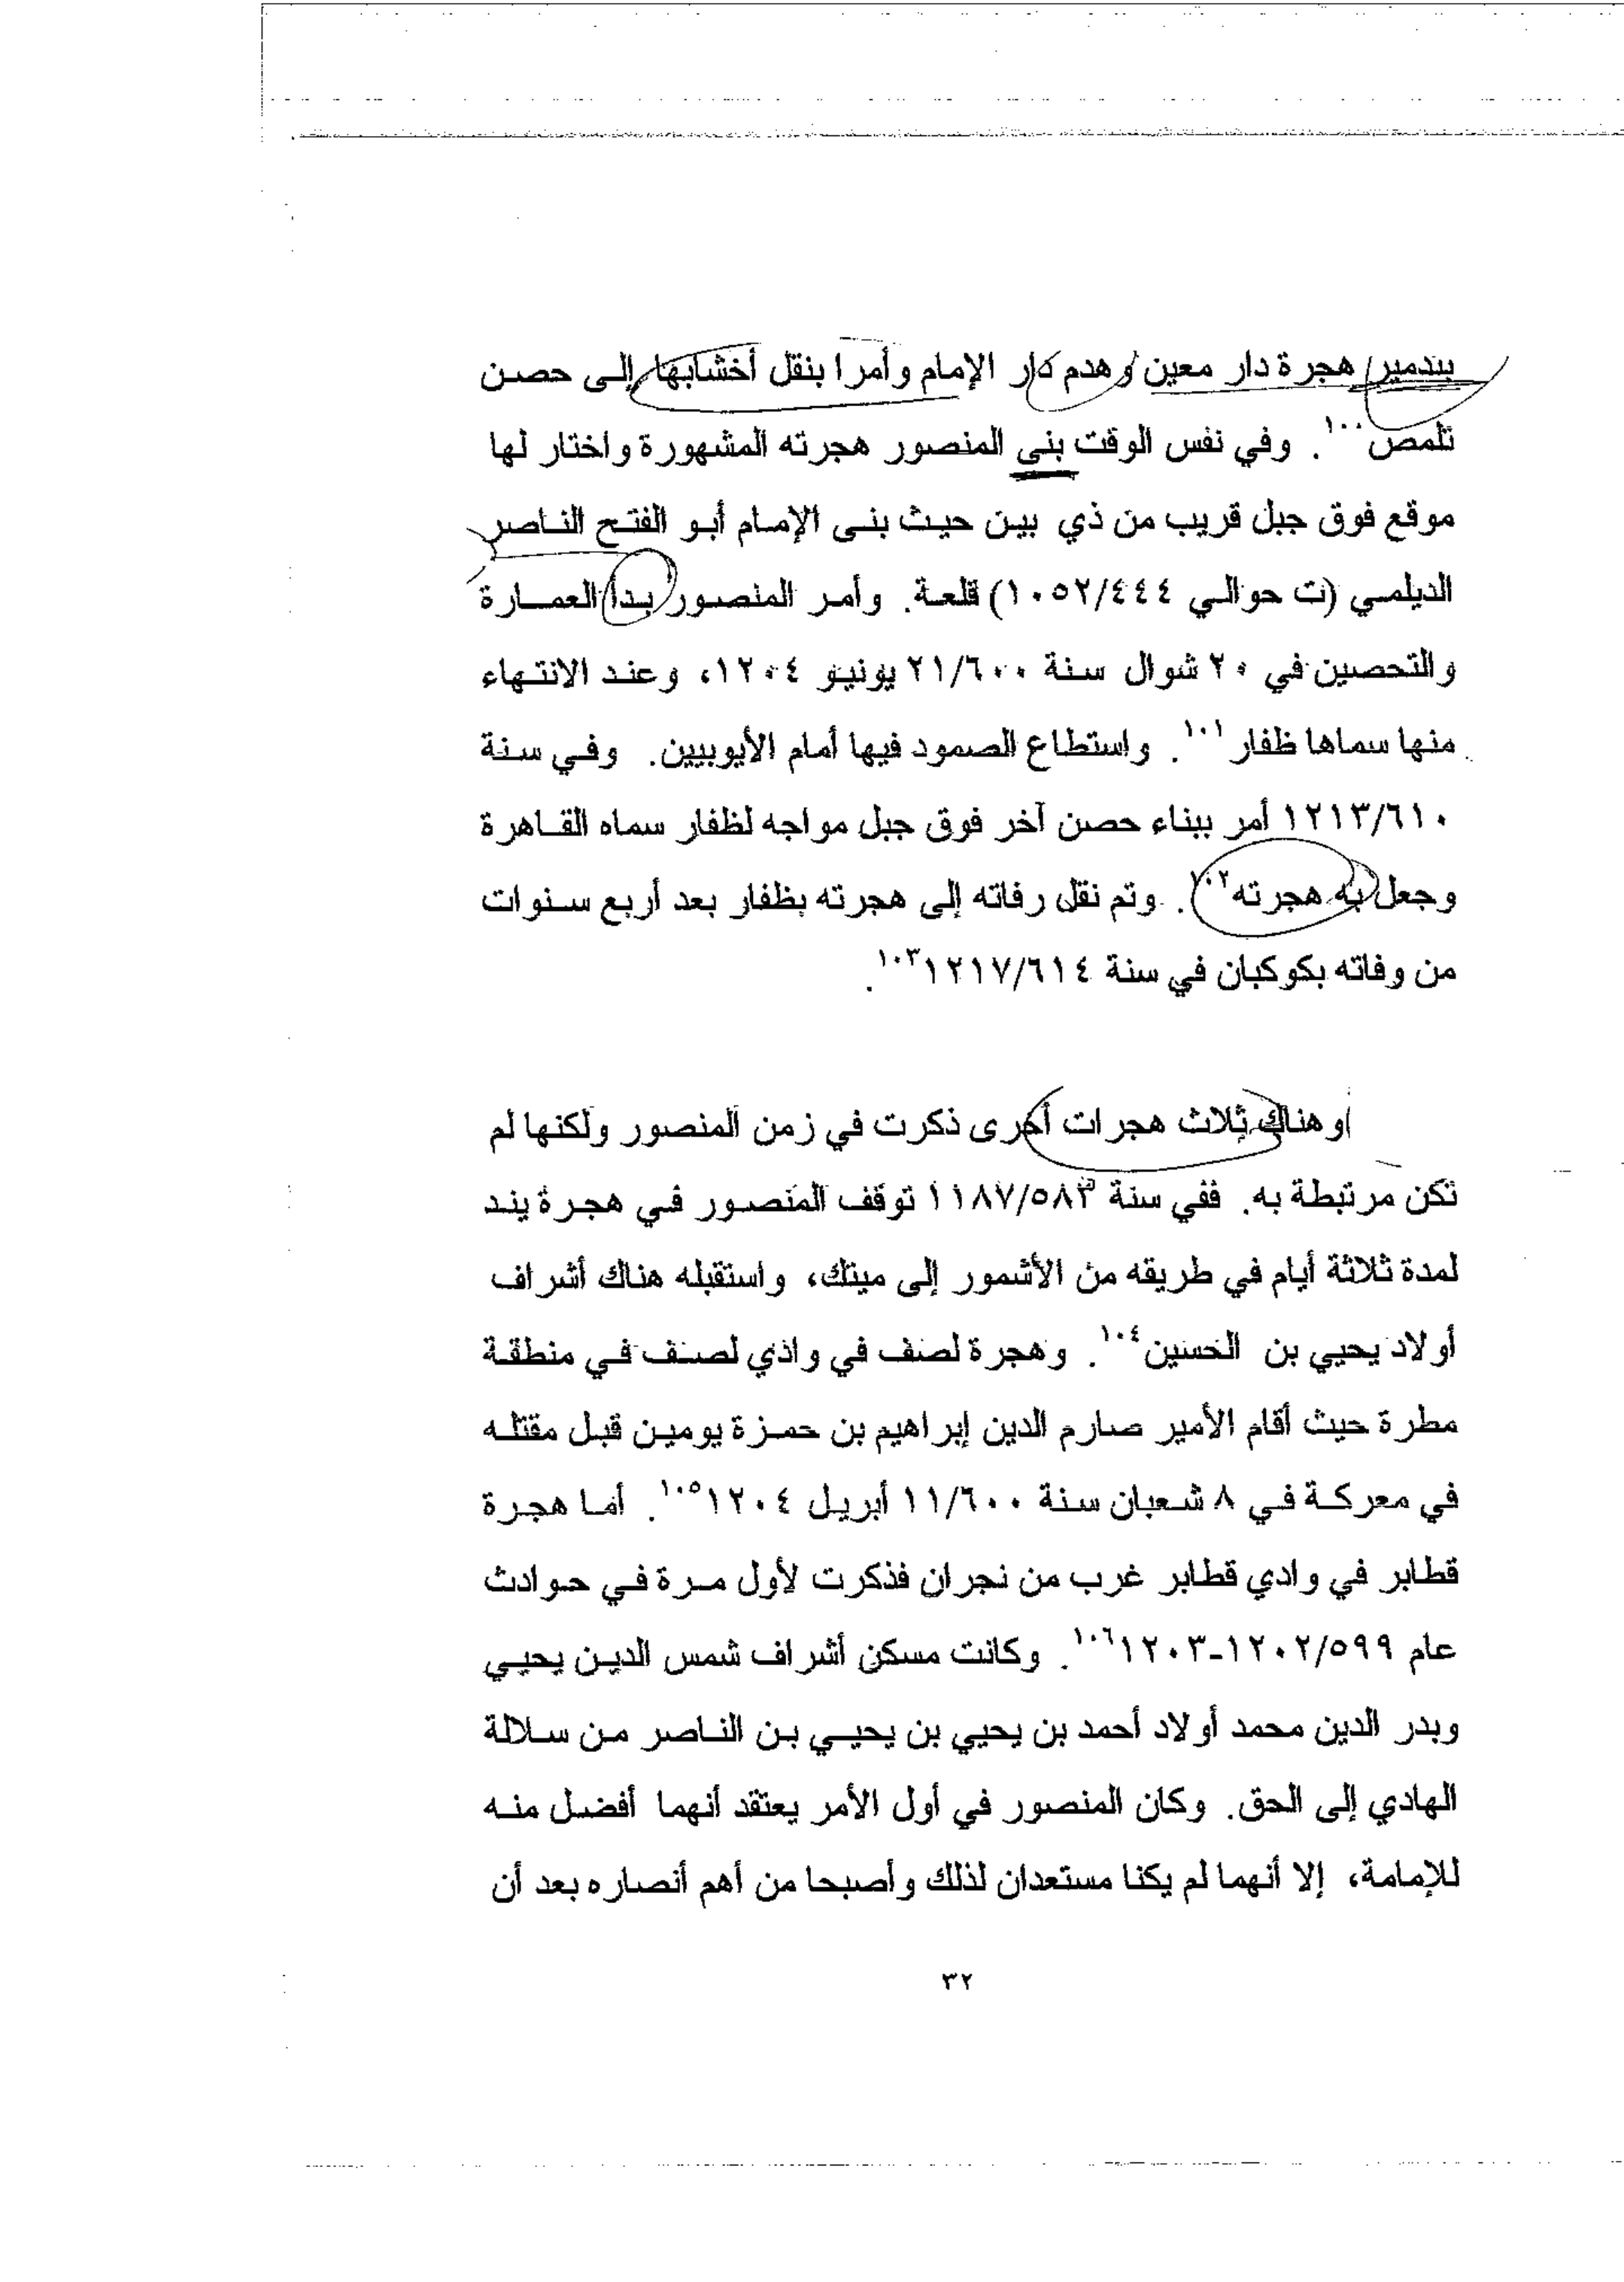 بتدمير هجرة دار معين وهدم دار الإمام وأمرا بنقل أخشابها إلى حصن
تلمص١٠٠. وفي نفس الوقت بنى المنصور هجرته المشهورة واختار لها
موقع فوق جبل قريب من ذي بين حيث بنى الإمام أبو الفتح الناصر
الديلمي (ت حوالي ١٠٥٢/٤٤٤) قلعة. وأمر المنصور بدا العمارة
والتحصين في ٢٠ شوال سنة ٢١/٦٠٠ يونيو ١٢٠٤، وعند الانتهاء
منها سماها ظفار١٠١. واستطاع الصمود فيها أمام الأيوبيين. وفي سنة
١٢١٣/٦١٠ أمر ببناء حصن آخر فوق جبل مواجه لظفار سماه القاهرة
وجعل به هجرته١٠٢. وتم نقل رفاته إلى هجرته بظفار بعد أربع سنوات
من وفاته بكوكبان في سنة ١٢١٧/٦١٤١٠٣.
وهناك ثلاث هجرات أخرى ذكرت في زمن المنصور ولكنها لم
تكن مرتبطة به. ففي سنة ١١٨٧/٥٨٣ توقف المنصور في هجرة يند
لمدة ثلاثة أيام في طريقه من الأشمور إلى ميتك، واستقبله هناك أشراف
أولاد يحيي بن الحسين١٠٤. وهجرة لصف في وادي لصف في منطقة
مطرة حيث أقام الأمير صارم الدين إبراهيم بن حمزة يومين قبل مقتله
في معركة في ٨ شعبان سنة ١١/٦٠٠ أبريل ١٢٠٤١٠٥. أما هجرة
قطابر في وادي قطابر غرب من نجران فذكرت لأول مرة في حوادث
عام ١٢٠٢/٥٩٩-١٢٠٣١٠٦. وكانت مسكن أشراف شمس الدين يحيي
وبدر الدين محمد أولاد أحمد بن يحيي بن يحيي بن الناصر من سلالة
الهادي إلى الحق. وكان المنصور في أول الأمر يعتقد أنهما أفضل منه
للإمامة، إلا أنهما لم يكنا مستعدان لذلك وأصبحا من أهم أنصاره بعد أن
٣٢